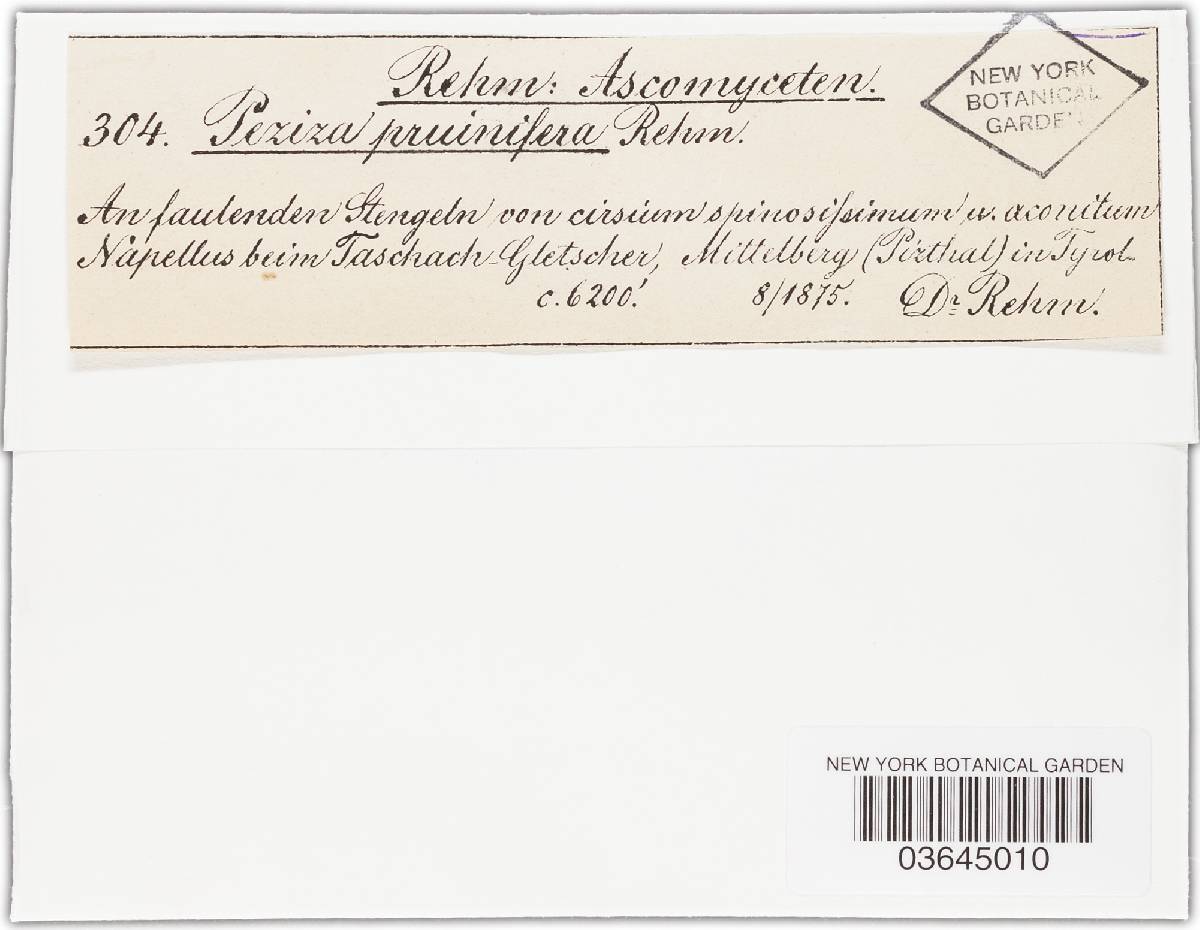 Rehm: Ascomyceten.
304. Peziza pruinifera Rehm.
An faulenden Stengeln von cirsium spinosissimum u. aconitum
Napellus beim Taschach-Gletscher, Mittelberg (Pizthal) in Tyrol
c. 6200.' 8/1875. Dr Rehm.
NEW YORK
BOTANICAL
GARDEN
NEW YORK BOTANICAL GARDEN
03645010